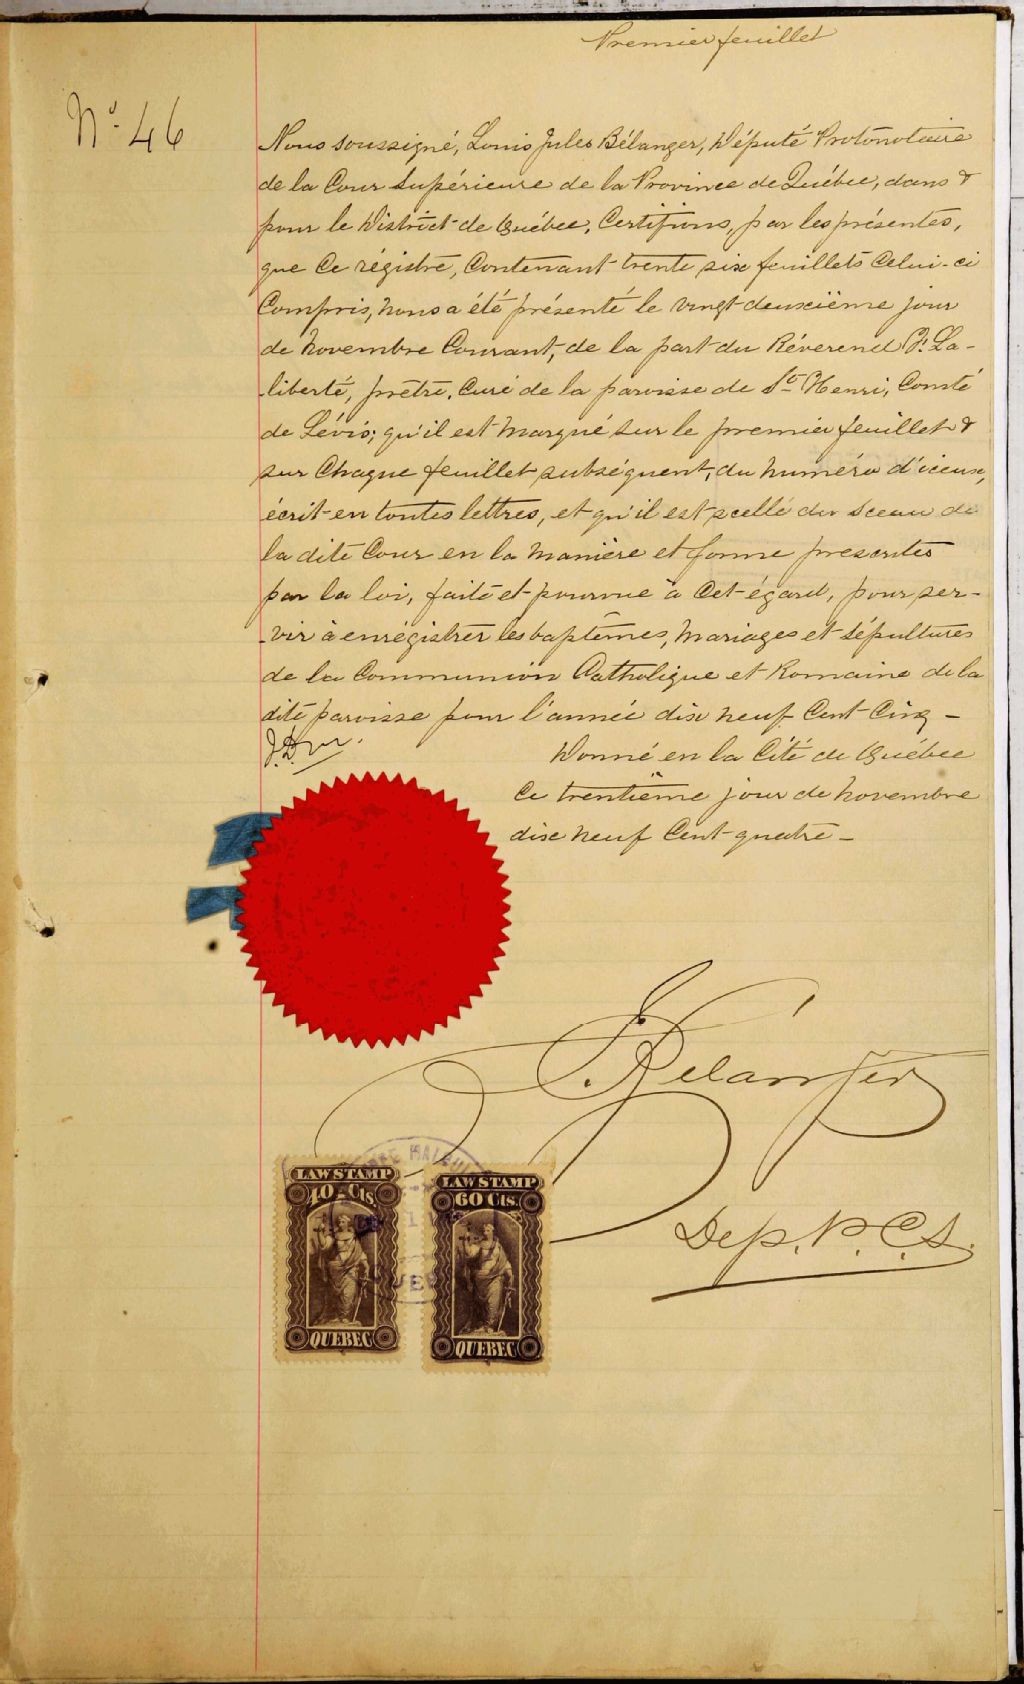 Premier feuillet
No. 46
Nous soussigné, Louis Jules Bélanger, Député Protonotaire
de la Cour Supérieure de la Province de Québec, dans &
pour le District de Québec, Certifions, par les présentes,
que Ce régistre, Contenant trente six feuillets Celui-ci
Compris, nous a été présenté le vingt deuxième jour
de Novembre Courant, de la part du Réverend P. La-
-liberté, prêtre, Curé de la paroisse de St. Henri, Comté
de Lévis; qu'il est Marqué sur le premier feuillet &
sur Chaque feuillet subséquent, du numéro d'iceux,
écrit en toutes lettres, et qu'il est scellé du Sceau de
la dite Cour en la Manière et forme prescrites
par la loi, faite et pourvue à Cet égard, pour ser-
-vir à enrégistrer les baptêmes, Mariages et Sépultures
de la Communion Catholique et Romaine de la
dite paroisse pour l'année dix neuf Cent Cinq -
Donné en la Cité de Québec
Ce trentième jour de Novembre
dix neuf Cent quatre -
Bélanger
Dep. P. C. S.
LAW STAMP LAW STAMP
40 Cts. 60 Cts.
QUEBEC QUEBEC